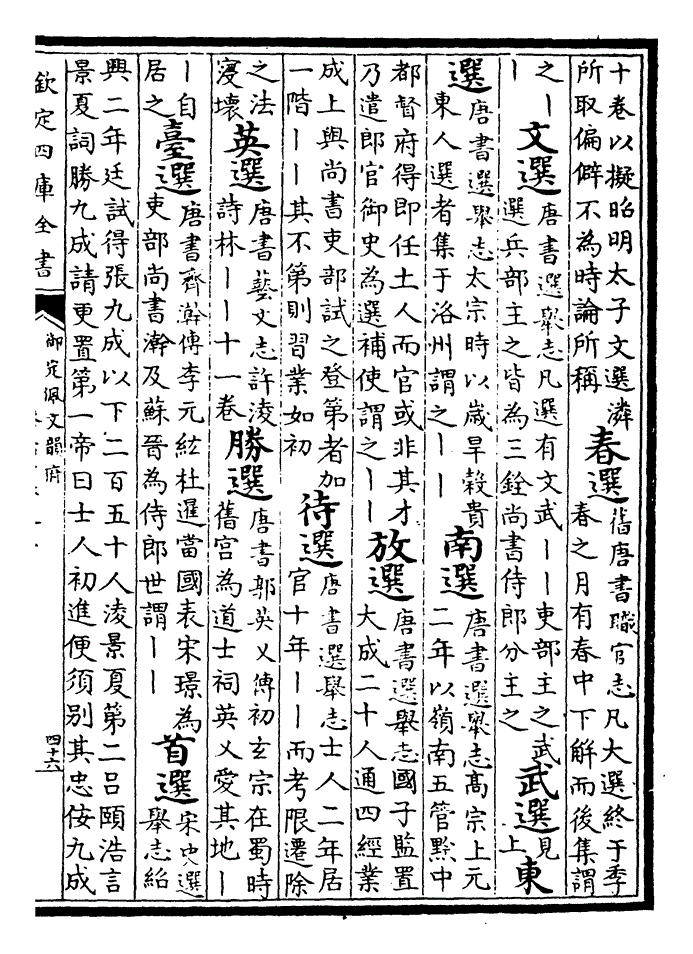 十卷以擬昭明太子文選潾
所取偏僻不為時論所稱
春選
舊唐書職官志凡大選終于季
春之月有春中下解而後集謂
之丨
丨
文選
唐書選舉志凡選有文武丨丨吏部主之武
選兵部主之皆為三銓尚書侍郎分主之
武選
見
上
東
選
唐書選舉志太宗時以歲旱穀貴
東人選者集于洛州謂之丨丨
南選
唐書選舉志高宗上元
二年以嶺南五管黔中
都督府得即任土人而官或非其才
乃遣郎官御史為選補使謂之丨丨
放選
唐書選舉志國子監置
大成二十人通四經業
成上與尚書吏部試之登第者加
一階丨丨其不第則習業如初
待選
唐書選舉志士人二年居
官十年丨丨而考限遷除
之法
寖壞
英選
唐書藝文志許淩
詩林丨丨十一卷
勝選
唐書郭英乂傳初玄宗在蜀時
舊宮為道士祠英乂愛其地丨
丨自
居之
臺選
唐書齊澣傳李元紘杜暹當國表宋璟為
吏部尚書澣及蘇晉為侍郎世謂丨丨
首選
宋史選
舉志紹
興二年廷試得張九成以下二百五十人淩景夏第二呂頤浩言
景夏詞勝九成請更置第一帝曰士人初進便須別其忠佞九成
欽定四庫全書
御定佩文韻府
四十六